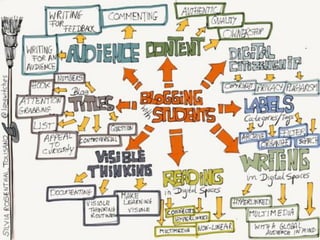 WRITING FOR FEEDBACK
COMMENTING
AUTHENTIC
QUALITY
OWNERSHIP
WRITING FOR AN AUDIENCE
AUDIENCE
CONTENT
DIGITAL CITIZENSHIP
COPYRIGHT
PRIVACY
PLAGIARISM
HOOK
NUMBERS
Blog TITLES
ATTENTION GRABBING
LIST
QUESTION
APPEAL TO CURIOSITY
CONTROVERSIAL
BLOGGING WITH STUDENTS
LABELS
Categories/Tags
ARCHIVE
ORGANIZE
FILTER
VISIBLE THINKING
DOCUMENTING
VISIBLE THINKING ROUTINES
MAKE LEARNING VISIBLE
READING
in Digital Spaces
CONNECTED
HYPERLINKED
MULTIMEDIA
NON-LINEAR
WRITING
in Digital Spaces
HYPERLINKED
MULTIMEDIA
WITH A GLOBAL AUDIENCE IN MIND
SILVIA ROSENTHAL TOLISANO @langwitches